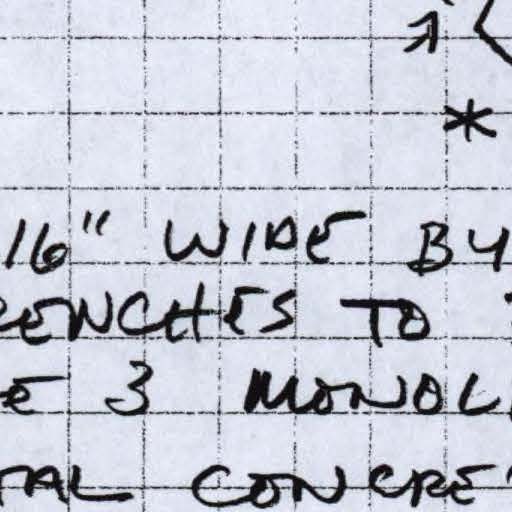 *
16" WIDE BY
RENCHES TO
E 3 MONOL
TAL CONCRE